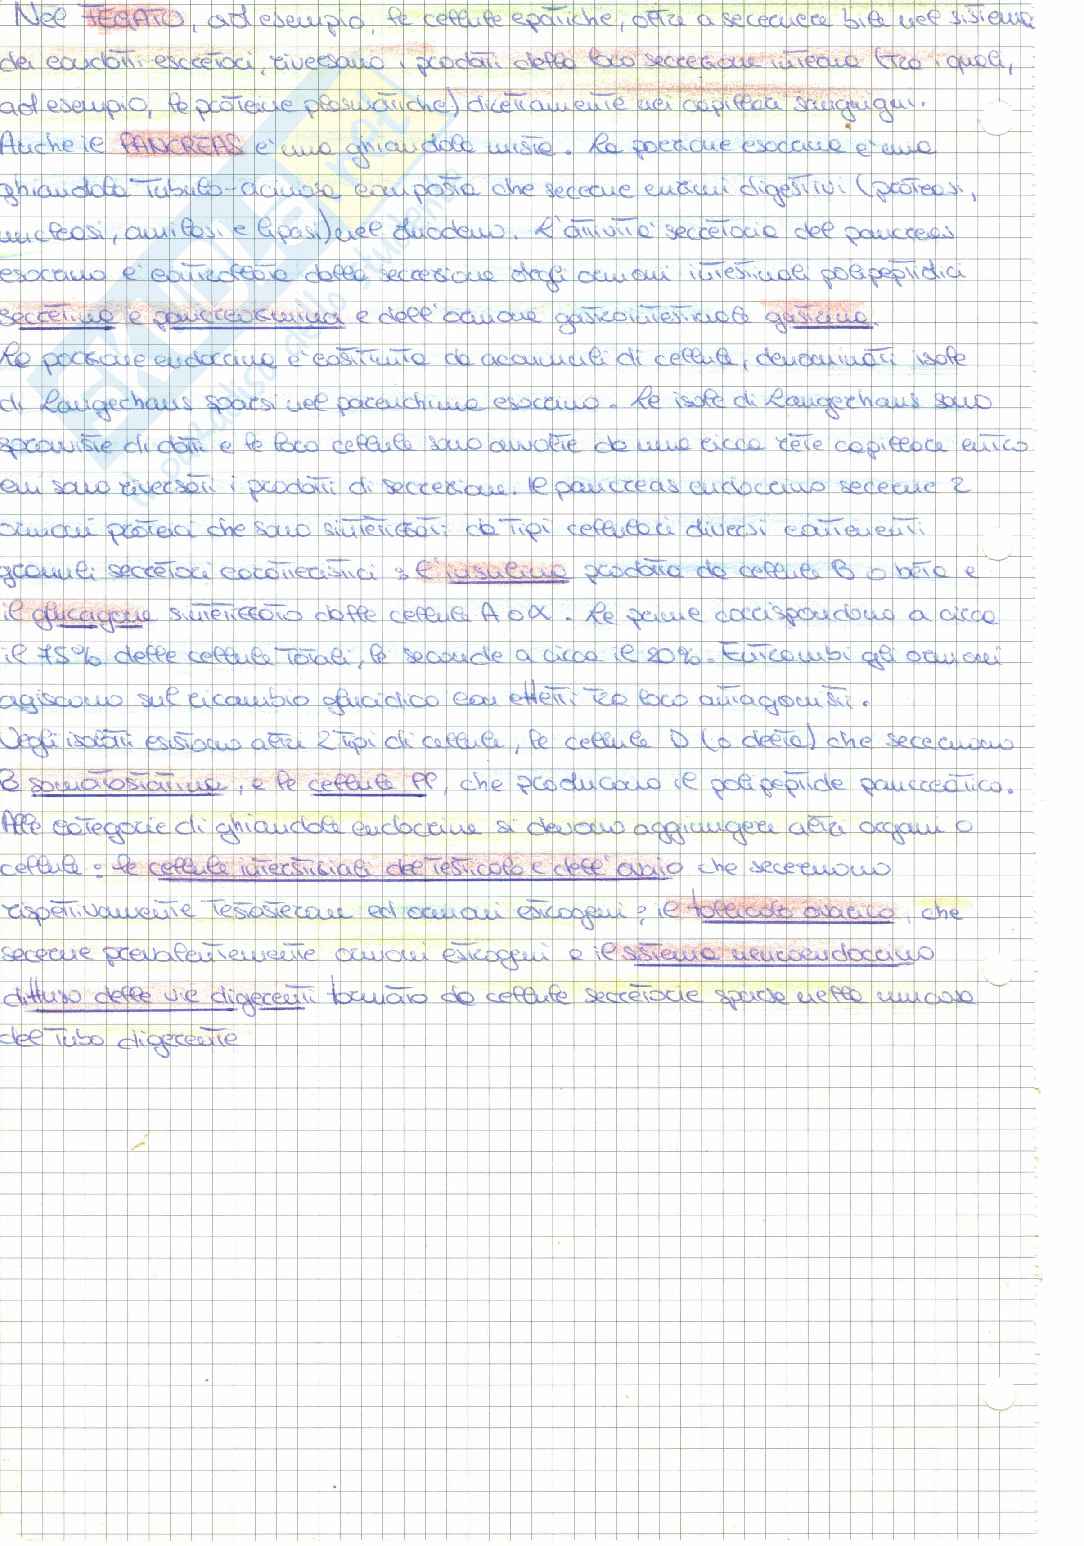 Nel FEGATO, ad esempio, le cellule epatiche, oltre a secernere bile nel sistema
dei condotti escretori, riversano i prodotti della loro secrezione interna (tra i quali,
ad esempio, le proteine plasmatiche) direttamente nei capillari sanguigni.
Anche il PANCREAS è una ghiandola mista. La porzione esocrina è una
ghiandola tubulo-acinosa composta che secerne enzimi digestivi (proteasi,
nucleasi, amilasi e lipasi) nel duodeno. L'attività secretoria del pancreas
esocrino è controllata dalla secrezione degli ormoni intestinali polipeptidici
secretina e pancreozimina e dell'ormone gastrointestinale gastrina.
La porzione endocrina è costituita da accumuli di cellule, denominati isole
di Langerhans sparsi nel parenchima esocrino. Le isole di Langerhans sono
sprovviste di dotti e le loro cellule sono avvolte da una ricca rete capillare entro
cui sono riversati i prodotti di secrezione. Il pancreas endocrino secerne 2
ormoni proteici che sono sintetizzati da tipi cellulari diversi contenenti
granuli secretori caratteristici: l'insulina prodotta da cellule B o beta e
il glucagone sintetizzato dalle cellule A o α. Le prime corrispondono a circa
il 75% delle cellule totali, le seconde a circa il 20%. Entrambi gli ormoni
agiscono sul ricambio glucidico con effetti tra loro antagonisti.
Negli isolotti esistono altri 2 tipi di cellule, le cellule D (o delta) che secernono
la somatostatina, e le cellule PP, che producono il polipeptide pancreatico.
Alle categorie di ghiandole endocrine si devono aggiungere altri organi o
cellule: le cellule interstiziali del testicolo e dell'ovaio che secernono
rispettivamente testosterone ed ormoni estrogeni; il follicolo ovarico, che
secerne prevalentemente ormoni estrogeni e il sistema neuroendocrino
diffuso delle vie digerenti formato da cellule secretorie sparse nella mucosa
del tubo digerente
SKUOLA.net
il paradiso dello studente